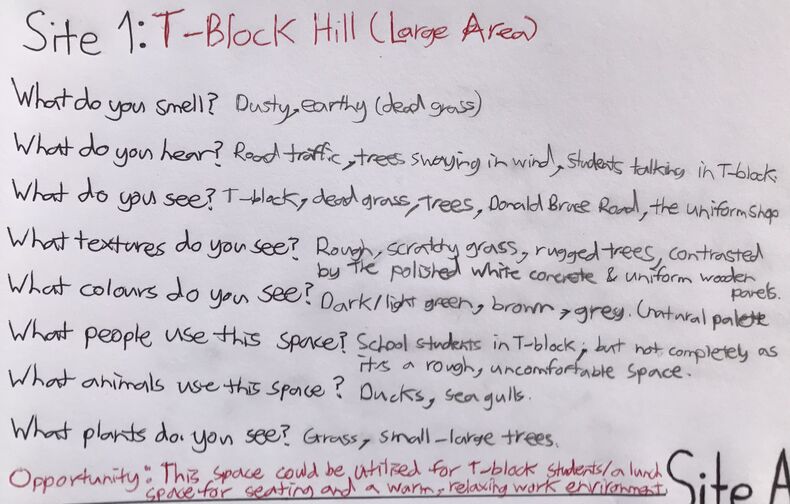 Site 1: T-Block Hill (Large Area)
What do you smell? Dusty, earthy (dead grass)
What do you hear? Road traffic, trees swaying in wind, students talking in T-block.
What do you see? T-block, dead grass, trees, Donald Bruce Road, the uniform shop
What textures do you see? Rough, scratty grass, rugged trees, contrasted
by the polished white concrete & uniform wooden
panels.
What colours do you see? Dark/light green, brown, grey. (natural palette
What people use this space? School students in T-block, but not completely as
it's a rough, uncomfortable space.
What animals use this space? Ducks, sea gulls.
What plants do you see? Grass, small-large trees.
Opportunity: This space could be utilized for T-block students/a lunch
space for seating and a warm, relaxing work environment
Site A